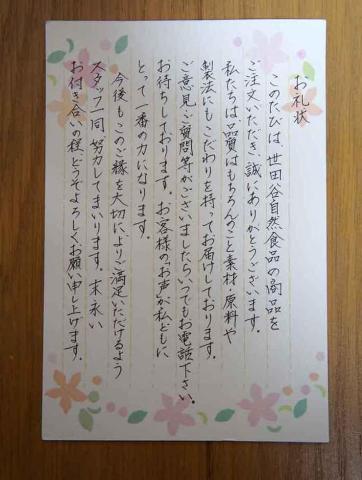 お礼状
このたびは、世田谷自然食品の商品を
ご注文いただき、誠にありがとうございます。
私たちは、品質はもちろんのこと素材・原料や
製法にもこだわりを持ってお届けしております。
ご意見・ご質問等がございましたらいつでもお電話下さい。
お待ちしております。お客様の「お声」が私どもに
とって一番の力になります。
今後もこのご縁を大切によりご満足いただけるよう
スタッフ一同努力してまいります。末永い
お付き合いの程どうぞよろしくお願い申し上げます。